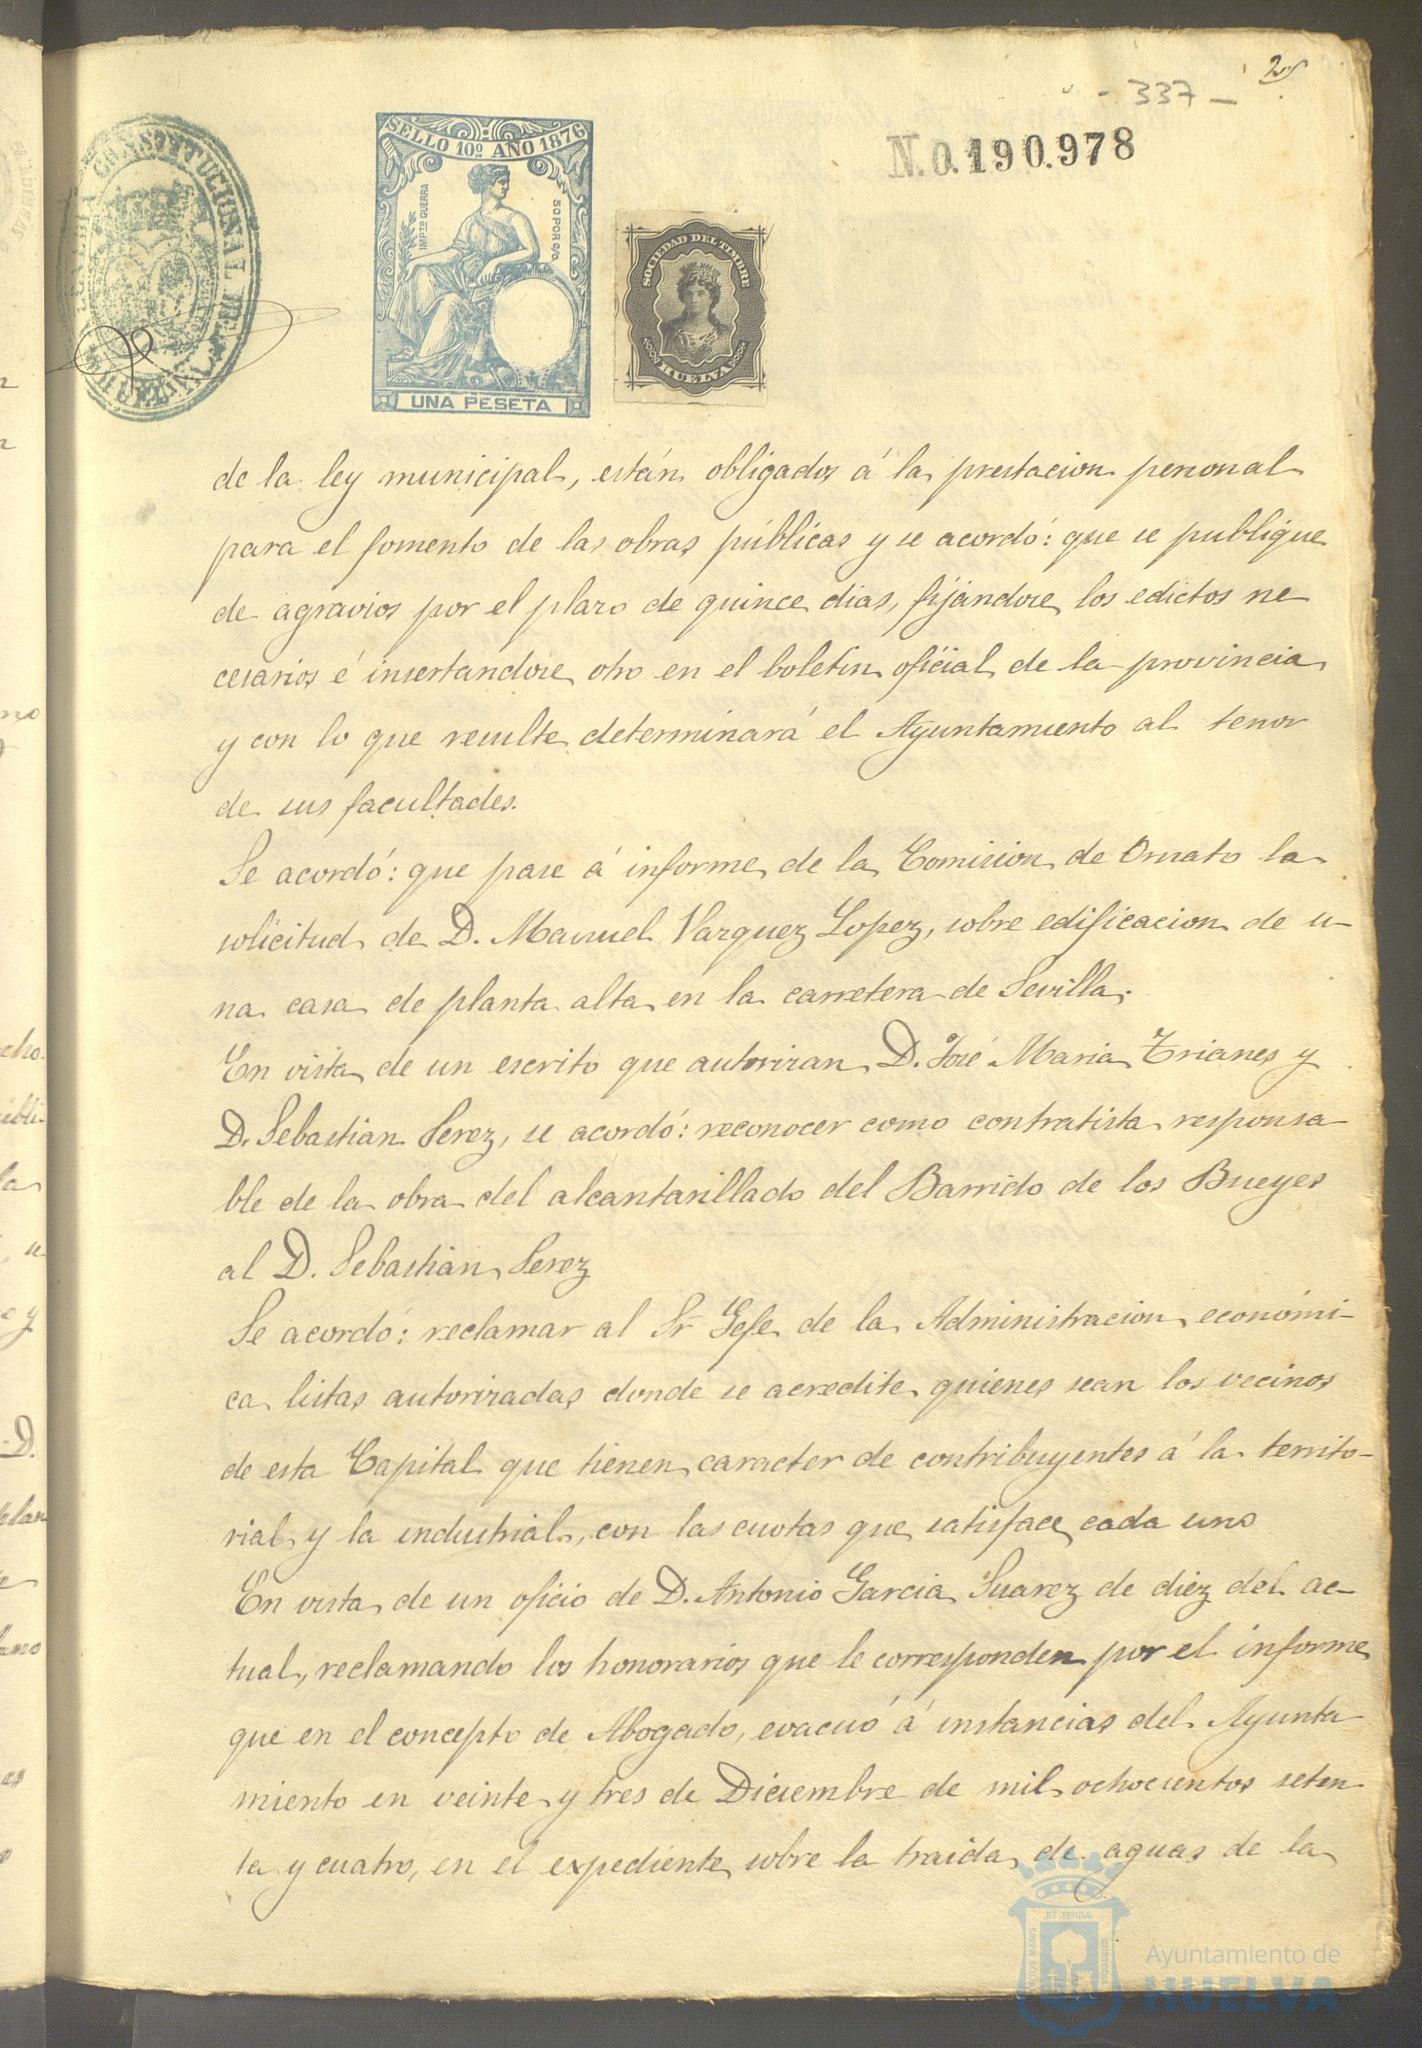 25
- 337 -
N.0.190.978
CONSTITUCIONAL DE
HUELVA
SELLO 10º AÑO 1876
IMPTO GUERRA
50 POR C/O.
UNA PESETA
SOCIEDAD DEL TIMBRE
HUELVA
de la ley municipal, están obligados á la prestacion personal
para el fomento de las obras públicas y se acordó: que se publique
de agravios por el plazo de quince dias, fijándose los edictos ne
cesarios é insertandose otro en el boletin oficial de la provincia
y con lo que resulte determinará el Ayuntamiento al tenor
de sus facultades.
Se acordó: que pase á informe de la Comision de Ornato la
solicitud de D. Manuel Vazquez Lopez, sobre edificacion de u-
na casa de planta alta en la carretera de Sevilla.
En vista de un escrito que autorizan D. José Maria Trianes y
D. Sebastian Perez, se acordó: reconocer como contratista responsa
ble de la obra del alcantarillado del Barrido de los Bueyes
al D. Sebastian Perez
Se acordó: reclamar al Sr. Gefe de la Administracion económi-
ca listas autorizadas donde se acredite quienes sean los vecinos
de esta Capital que tienen caracter de contribuyentes á la territo-
rial y la industrial, con las cuotas que satisface cada uno
En vista de un oficio de D. Antonio Garcia Suarez de diez del ac-
tual, reclamando los honorarios que le corresponden por el informe
que en el concepto de Abogado, evacuó á instancias del Ayunta
miento en veinte y tres de Diciembre de mil ochocientos seten
ta y cuatro, en el expediente sobre la traida de aguas de la
Ayuntamiento de
HUELVA